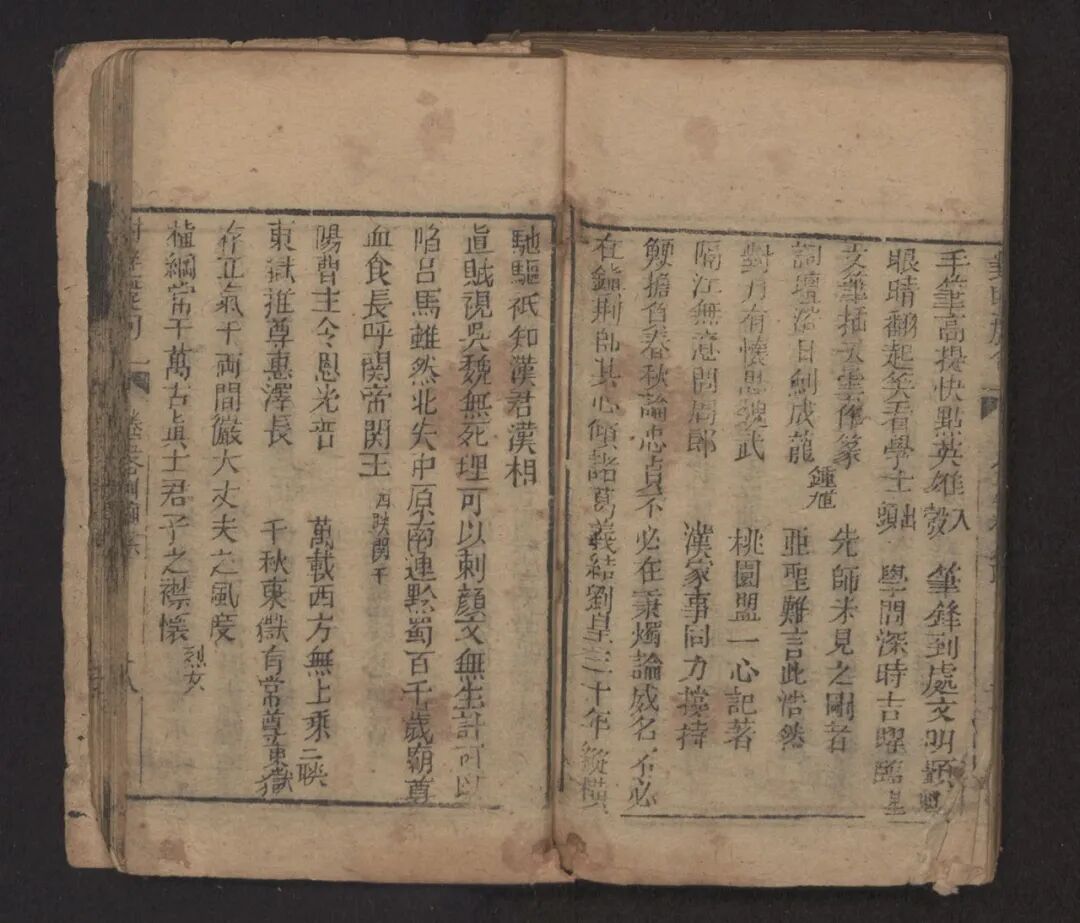 手筆高提快點英雄入彀　筆鋒到處文明顯
眼睛翻起笑看學士出頭　學問深時吉曜臨
文華插天雲作篆　先師未見之剛者
詞壇　日劍成龍　鍾馗　亞聖難言此浩然
對刀有懷思　武　桃園盟一心記著
隔江無意問周郎　漢家事同力撐持
鯁擔負春秋論忠貞不必在秉燭論威名不必
在　荊師其心傾諸葛義結劉皇三十年縱橫
馳驅祇知漢君漢相
真賊視吳魏無死理可以刺顏文無生計可以
陷呂馬雖然北失中原奈南連黔蜀百千歲廟尊
血食長呼関帝関王　四聯関平
陽曹主令恩光普　萬載西方無上乘　二聯
東嶽推尊惠澤長　千秋東嶽有常尊　東嶽
存正氣于兩間嚴大丈夫之風度
植綱常于萬古真士君子之襟懷　烈女